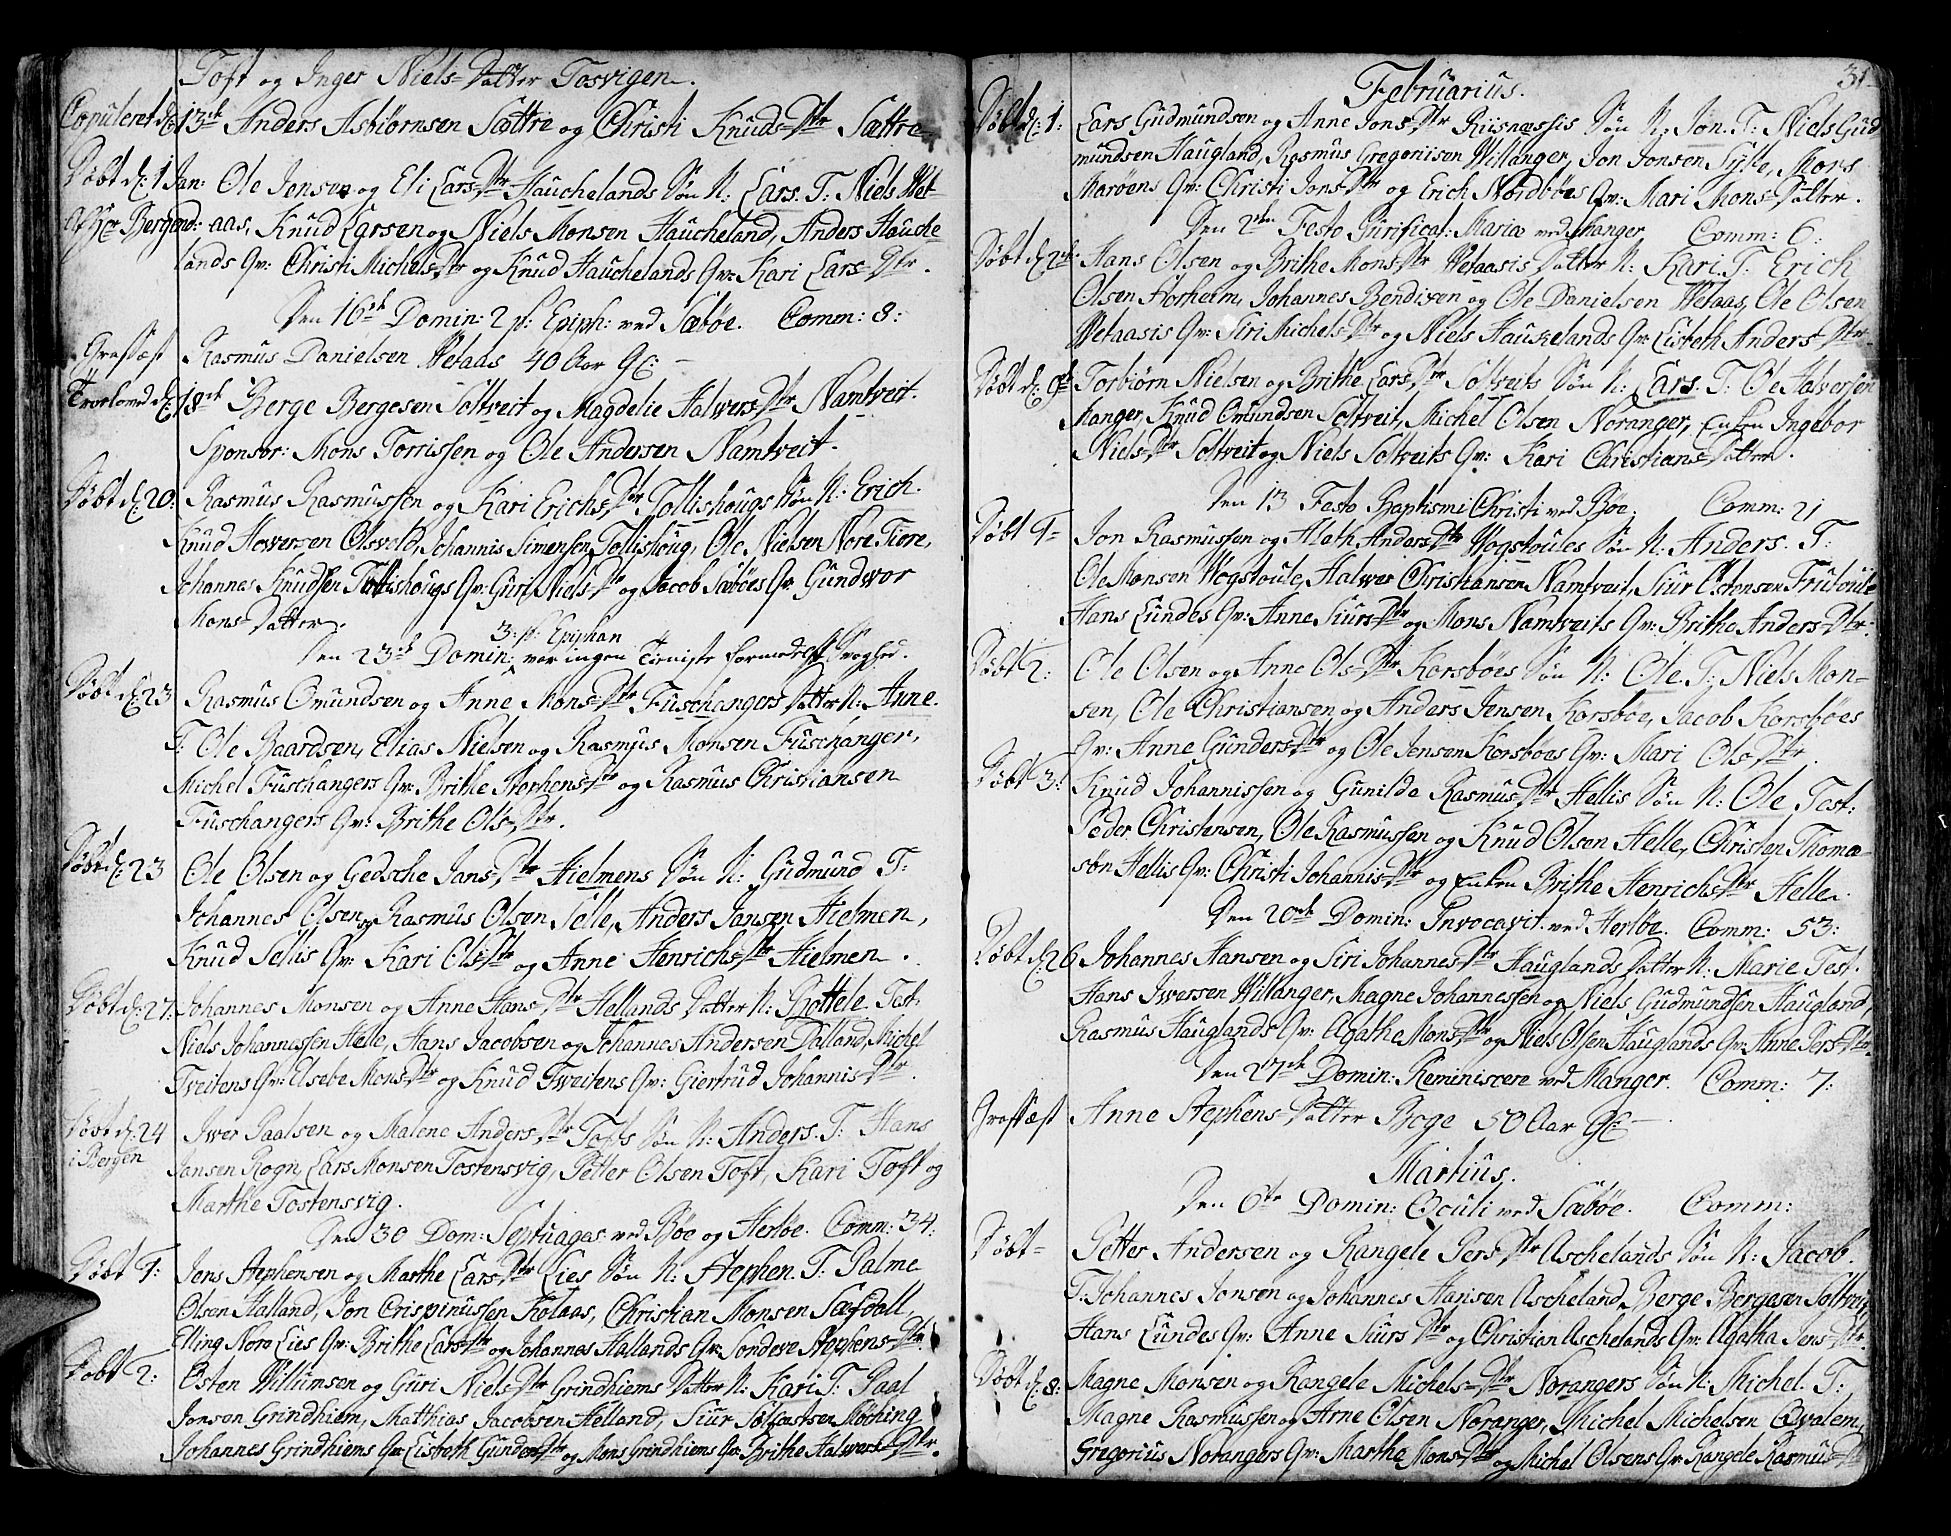 Toft og Inger Niels-Datter Tosvigen.
Copuleret d: 13de Anders Asbiørnsen Sættre og Christi Knuds-Dtr Sættre
Døbt d: 1 Jan: Ole Jensen og Eli Lars-Dtr Hauchelands Søn N: Lars. T: Niels Wet-
af Hr Bergend: aas, Knud Larsen og Niels Monsen Haucheland, Anders Hauche-
lands Qv: Christi Michels-Dtr og Knud Hauchelands Qv: Kari Lars-Dtr.
Den 16de Domin: 2 p: Epiph: ved Sæbøe. Comm: 8:
Grafsæst Rasmus Danielsen Wetaas 40 Aar gl:
Trorlowed d: 18de Berge Bergesen Soltveit og Magdelie Halvers-Dtr Namtveit.
Sponsor: Mons Torrissen og Ole Andersen Namtveit.
Døbt d: 20: Rasmus Rasmussen og Kari Erichs-Dtr Tollishougs Søn N: Erich.
Knud Hosversen Olsvold, Johannis Simensen Tollishoug, Ole Nielsen Nore Fiore,
Johannes Knudsen Tollishougs Qv: Guri Niels-Dr og Jacob Sæbøes Qv: Gundvor
Mons-Datter.
3: p: Epiphan
Den 23de Domin: var ingen Tieniste formedelst Svaghed.
Døbt d: 23 Rasmus Omundsen og Anne Mons-Dtr Fuschangers Datter N: Anne.
T: Ole Baardsen, Elias Nielsen og Rasmus Monsen Fuschanger,
Michel Fuschangers Qv: Brithe Stephens-Dtr og Rasmus Christiansen
Fuschangers Qv: Brithe Ols-Dtr.
Døbt d: 23 Ole Olsen og Gedsche Jans-Dtr Hielmens Søn N: Gudmund T:
Johannes Olsen og Rasmus Olsen Selle, Anders Jansen Hielmen,
Knud Sellis Qv: Kari Ols-Dtr og Anne Henrichs-Dtr Hielmen.
Døbt d: 27: Johannes Monsen og Anne Hans-Dtr Hellands Datter N: Lottele. Test.
Niels Johannessen Helle, Hans Jacobsen og Johannes Andersen Dalland, Michel
Tveitens Qv: Asebe Mons-Dtr og Knud Tveitens Qv: Giertrud Johannis-Dtr.
Døbt d: 24 Iwer Paalsen og Malene Anders-Dtr Tofts Søn N: Anders. T: Hans
i Bergen Jansen Rogn, Lars Monsen Tostensvig, Petter Olsen Toft, Kari Toft og
Marthe Tostensvig.
Den 30 Dom: Septuages: ved Bøe og Herløe. Comm: 34:
Døbt 1: Jens Stephensen og Marthe Lars-Dtr Lies Søn N: Stephen. T: Palme
Olsen Halland, Jon Crispinussen Kolaas, Christian Monsen Sæfdall,
Elling Nore Lies Qv: Brithe Lars-Dtr og Johannes Hallands Qv: Sondeve Stephens-Dtr.
Døbt 2: Østen Willumsen og Guri Niels-Dtr Grindhiems Datter N: Kari T: Paal
Jonsen Grindhiem, Mathias Jacobsen Helland, Siur Sølfastsen Møching
Johannes Grindhiems Qv: Lisbeth Gunders-Dtr og Mons Grindhiems Qv: Brithe Halvers-Dtr.
31
Februarius.
Døbt d: 1: Lars Gudmundsen og Anne Jons-Dtr Riisnæssis Søn N: Jon. T: Niels Gud
mundsen Haugland, Rasmus Gregoriisen Willanger, Jon Jonsen Sylte, Mors
Marøens Qv: Christi Jons-Dtr og Erich Nordbøes Qv: Mari Mons-Datter.
Den 2den Festo Purificat: Mariæ ved Manger Comm: 6:
Døbt d: 2de: Hans Olsen og Brithe Mons-Dtr Wetaasis Datter N: Kari. T: Erich
Olsen Horheim, Johannes Bendixen og Ole Danielsen Wetaas, Ole Olsen
Wetaasis Qv: Siri Michels-Dtr og Niels Hauskelands Qv: Lisbeth Anders-Dtr.
Døbt d: 9de Torbiørn Nielsen og Brithe Lars-Dtr Soltveits Søn N: Lars. T: Ole Halversen
Manger, Knud Omundsen Soltveit, Michel Olsen Noranger, Enken Ingebor
Niels-Dtr Soltveit og Niels Soltveits Qv: Kari Christians-Datter.
Den 13 Festo Baptismi Christi ved Bøe. Comm: 21
Døbt 1- Jon Rasmussen og Aleth Anders-Dtr Wogstoules Søn N: Anders. T:
Ole Monsen Wogstoule, Halvor Christiansen Namtveit, Siur Østensen Triestoule
Hans Lundes Qv: Anne Siurs-Dtr og Mons Namtveits Qv: Brithe Anders-Dtr.
Døbt 2: Ole Olsen og Anne Ols-Dtr Korsboes Søn N: Ole T: Niels Mon-
sen, Ole Christiansen og Anders Jensen Korsbøe, Jacob Korsbøes
Qv: Anne Gunders-Dtr og Ole Jensen Korsboes Qv: Mari Ols-Dtr.
Døbt 3: Knud Johannissen og Gunilde Rasmus-Dtr Hellis Søn N: Ole Test:
Peder Christensen, Ole Rasmussen og Knud Olsen Helle, Christen Thoma-
søn Hellis Qv: Christi Johannis-Dtr og Enken Brithe Henrichs-Dtr Helle.
Den 20de Domin: Invocavit ved Herløe. Comm: 53:
Døbt d: 26 Johannes Hansen og Siri Johannes-Dtr Hauglands Datter N: Marie Test.
Hans Iwersen Willanger, Magne Johannessen og Niels Gudmundsen Haugland,
Rasmus Hauglands Qv: Agathe Mons-Dtr og Niels Olsen Hauglands Qv: Anne Pers-Dtr.
Den 27de Domin: Reminiscere ved Manger. Comm: 7:
Grafsæst Anne Stephens-Datter Boge 50 Aar gl:
Martius.
Den 6te Domin: Oculi ved Sæbøe. Comm:
Døbt- Petter Andersen og Rangele Pers-Dtr Aschelands Søn N: Jacob.
T: Johannes Jonsen og Johannes Hansen Ascheland, Berge Bergesen Soltveit
Hans Lundes Qv: Anne Siurs-Dtr og Christian Aschelands Qv: Agatha Jens-Dtr
Døbt d: 8: Magne Monsen og Rangele Michels-Dtr Norangers Søn N: Michel. T:
Magne Rasmussen og Arne Olsen Noranger, Michel Michelsen Qvalem,
Gregorius Norangers Qv: Marthe Mons-Dtr og Michel Olsens Qv: Rangele Rasmus-Dtr